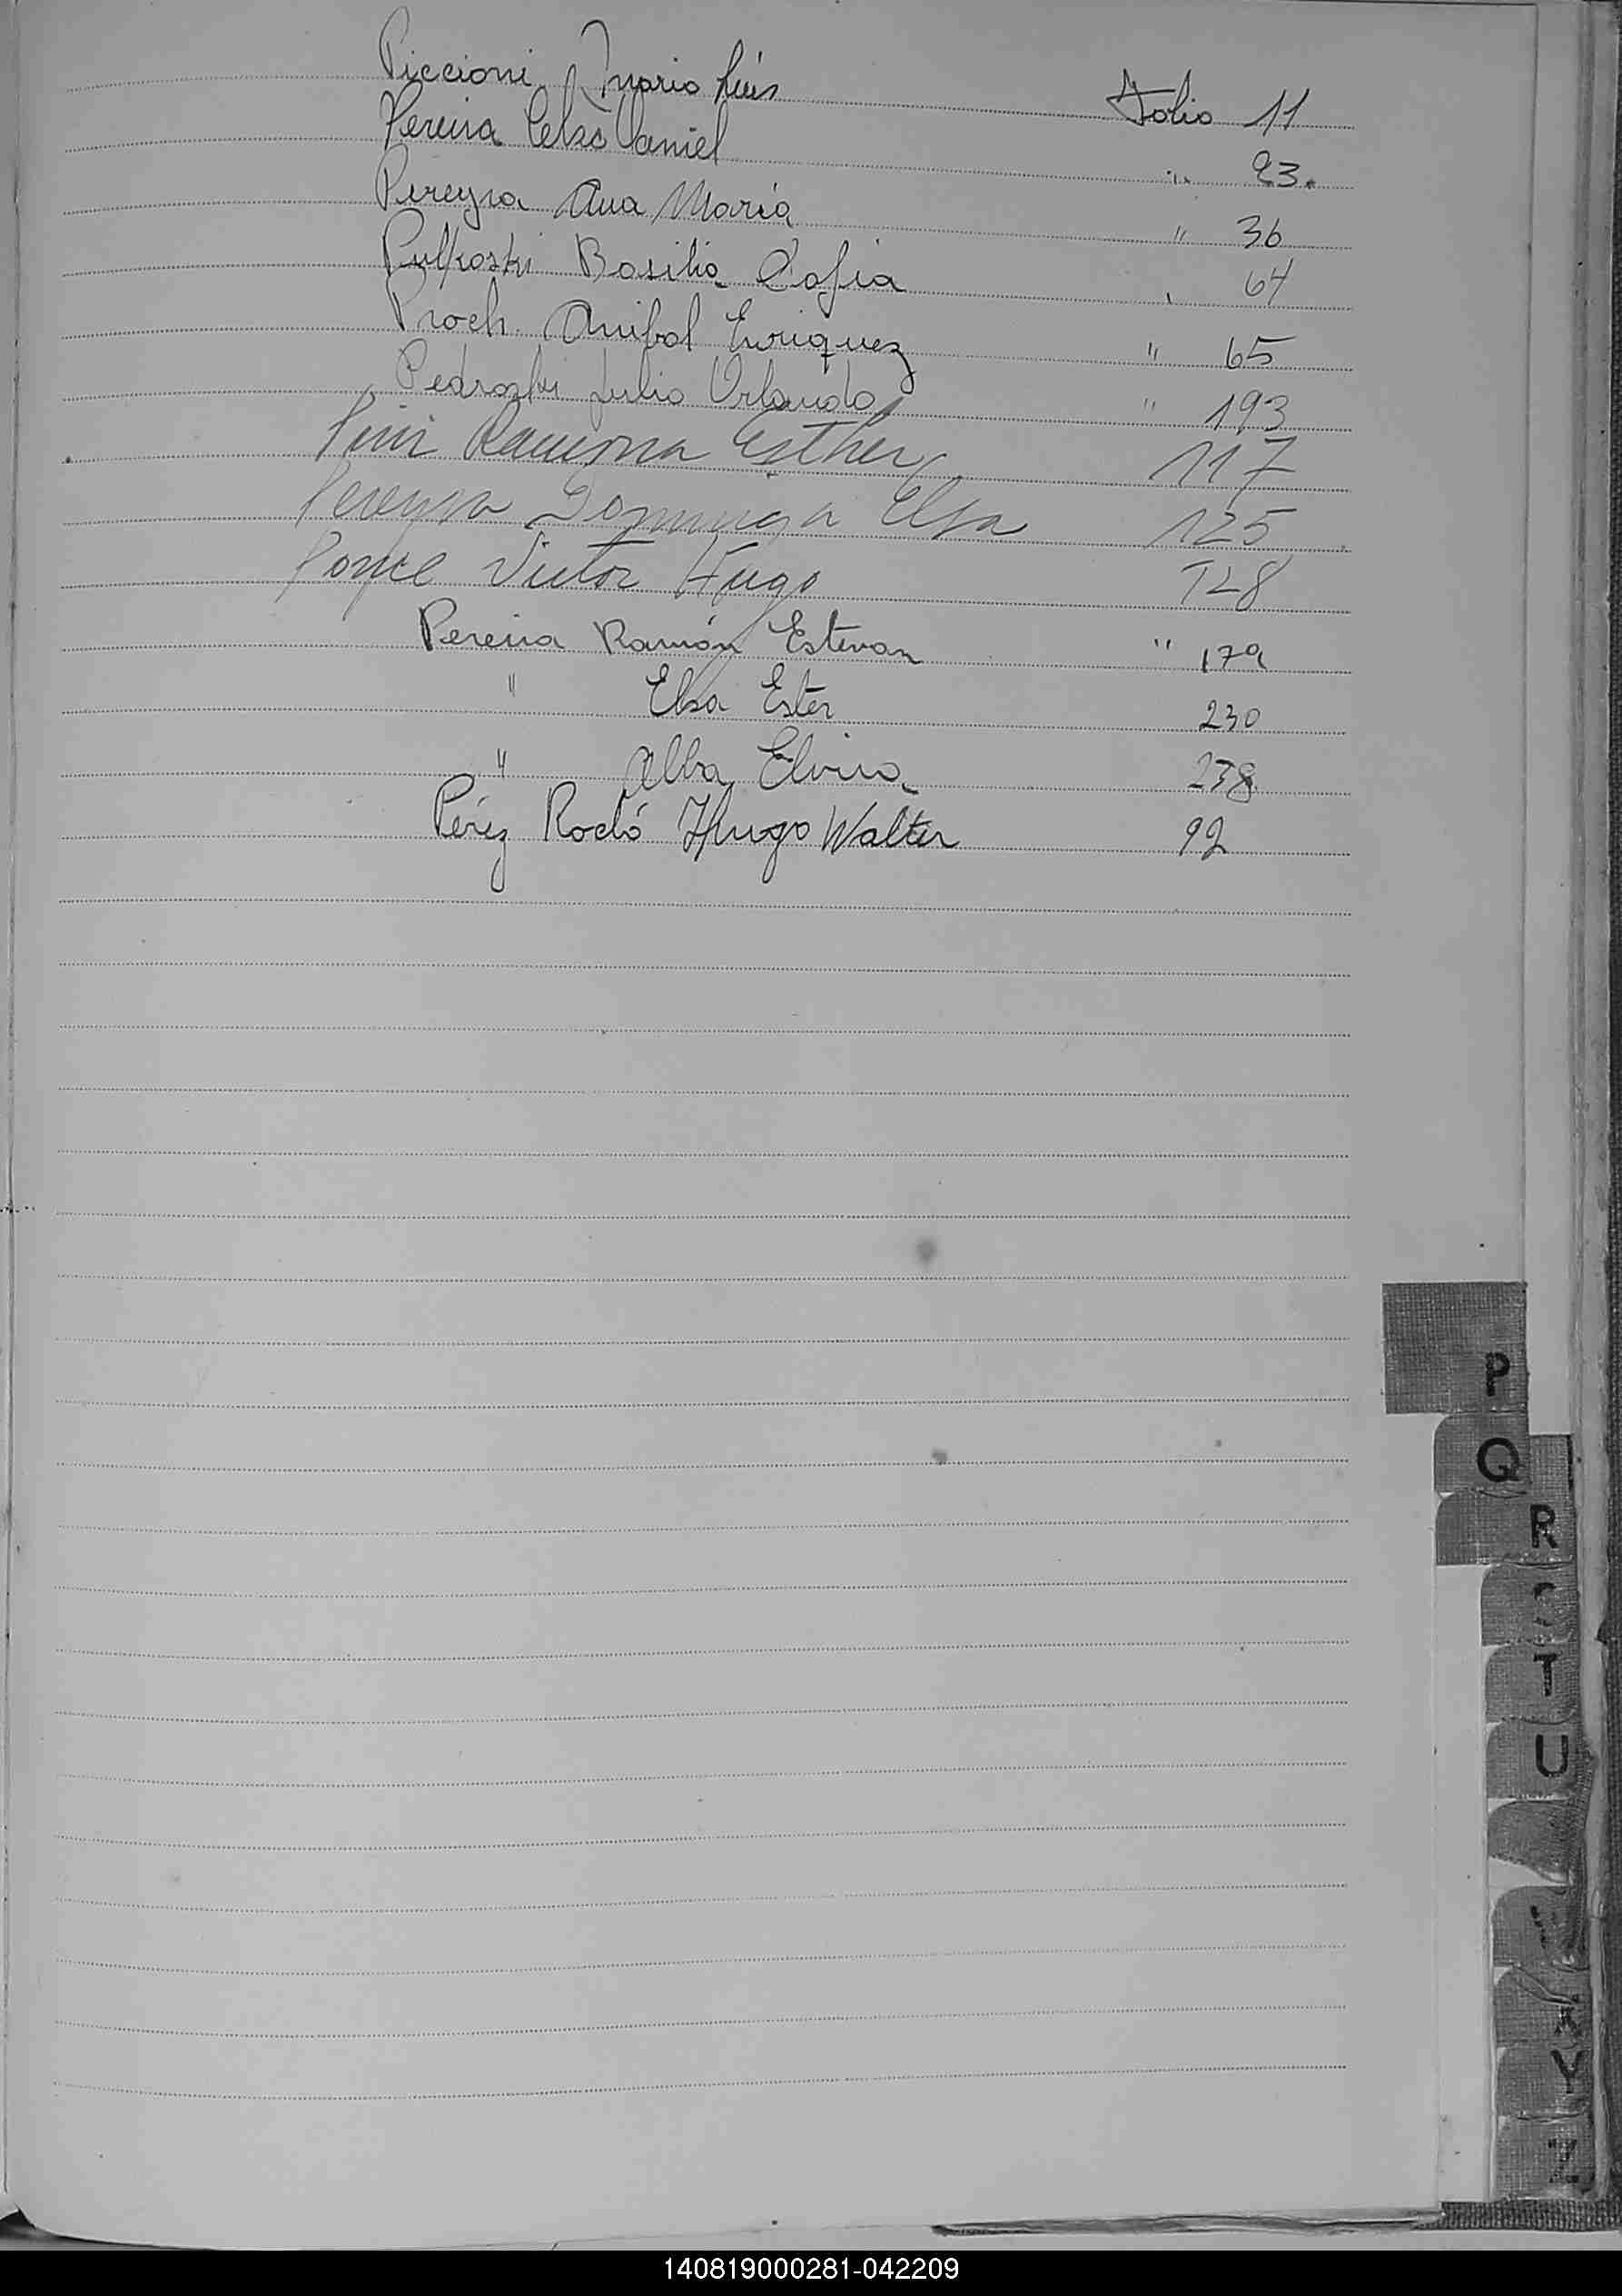 Piccioni Mario Luis Folio 11
Pereira Celso Daniel " 23.
Pereyra Ana María " 36
Pulkoski Basilia Sofia " 64
Proch Anibal Enriquez " 65
Pedrozki Julio Orlando " 193
Pini Ramona Esther 117
Pereyra Dominga Elsa 125
Ponce Victor Hugo 128
Pereira Ramón Estevan " 179
" Elsa Ester 230
" Alba Elvira 238
Pérez Rodó Hugo Walter 92
P
Q
R
S
T
U
X
Y
Z
140819000281-042209